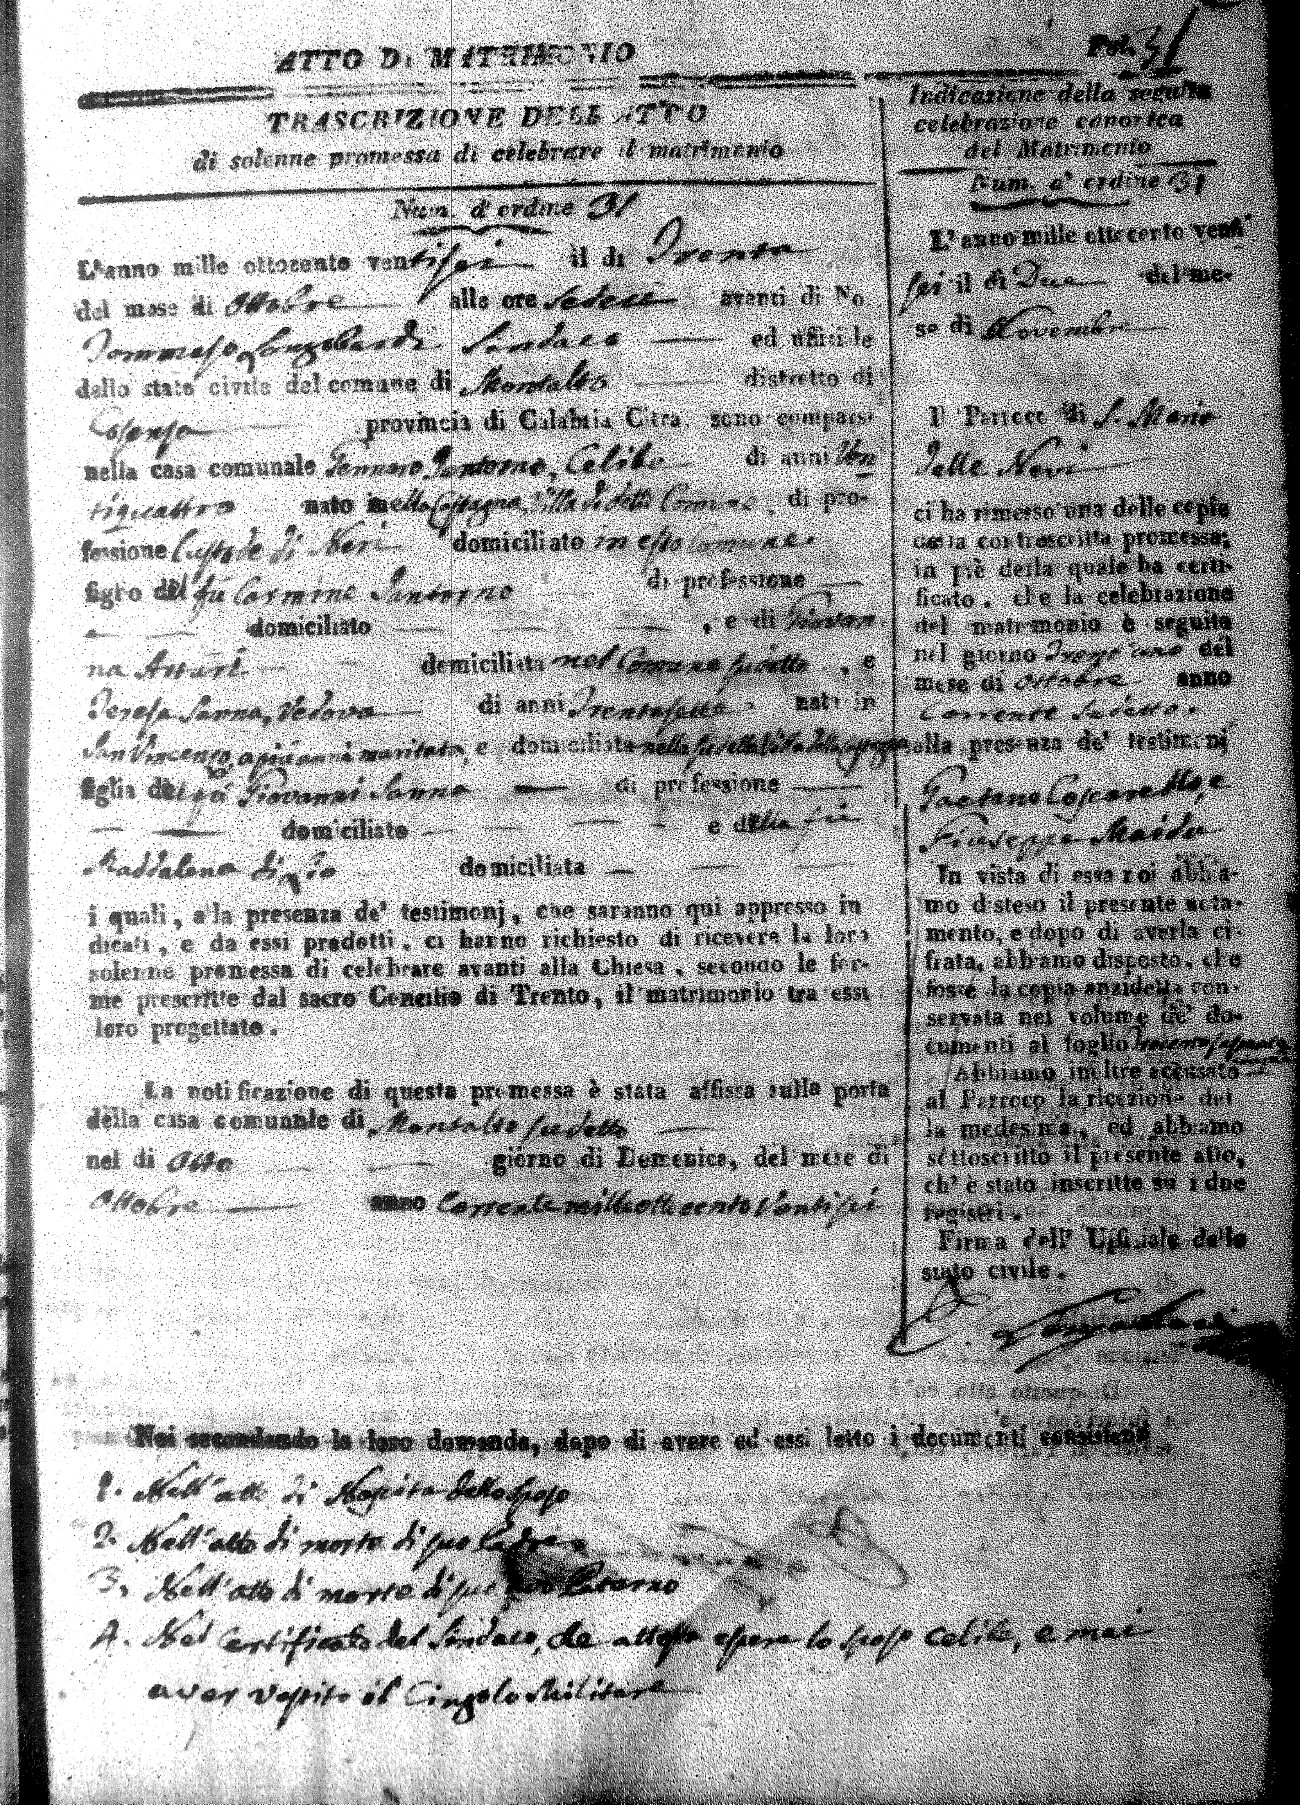 ATTO DI MATRIMONIO
TRASCRIZIONE DELL'ATTO
di solenne promessa di celebrare il matrimonio
Num. d'ordine 31
L'anno mille ottocento ventisei il di Trenta
del mese di Ottobre alle ore Sedeci avanti di Noi
Tommaso Longobardi Sindaco ed uffiziale
dello stato civile del comune di Montalto distretto di
Cosenza provincia di Calabria Citra, sono comparsi
nella casa comunale Gennaro Santorno, Celibe di anni Ven
tiquattro nato in Villa di detto Comune, di pro-
fessione Custode di Neri domiciliato in esso Comune.
figlio del fu Carmine Santorno di professione
domiciliato , e di
na domiciliata nel Comune sudetto, e
Teresa Sanna, Vedova di anni Trentasette nata in
San Vincenzo, maritata, e domiciliata nella
figlia del fu Giovanni Sanna di professione
domiciliato e della fu
Maddalena di domiciliata
i quali, alla presenza de' testimonj, che saranno qui appresso in
dicati, e da essi prodotti, ci hanno richiesto di ricevere la loro
solenne promessa di celebrare avanti alla Chiesa, secondo le for-
me prescritte dal sacro Concilio di Trento, il matrimonio tra essi
loro progettato.
La notificazione di questa promessa è stata affissa sulla porta
della casa comunale di Montalto sudetto
nel di Otto giorno di Domenica, del mese di
Ottobre anno Corrente milleottocento Ventisei
Noi secondando la loro domanda, dopo di avere ad essi letto i documenti consistenti
1. Nell'atto di Nascita dello Sposo
2. Nell'atto di morte di suo Padre
3. Nell'atto di morte di suo Avo Paterno
4. Nel Certificato del Sindaco, che attesta essere lo sposo celibe, e mai
aver vestito il Cingolo Militare
Fol. 31
Indicazione della seguita
celebrazione canonica
del Matrimonio
Num. d'ordine 31
L'anno mille ottocento venti
sei il di Due del me-
se di Novembre
Il Parroco di S. Maria
delle Nevi
ci ha rimesso una delle copie
della controscritta promessa;
in piè della quale ha certi-
ficato, che la celebrazione
del matrimonio è seguita
nel giorno Trent'uno del
mese di Ottobre anno
Corrente Sudetto.
alla presenza de' testimonj
Gaetano Coscarella, e
Giuseppe Maida
In vista di essa noi abbia-
mo disteso il presente nota-
mento, e dopo di averla ci-
frata, abbiamo disposto, che
fosse la copia anzidetta con-
servata nel volume de' do-
cumenti al foglio
Abbiamo inoltre accusato
al Parroco la ricezione del
la medesima, ed abbiamo
sottoscritto il presente atto,
ch' è stato inscritto su i due
registri.
Firma dell' Uffiziale dello
stato civile.
Longobardi